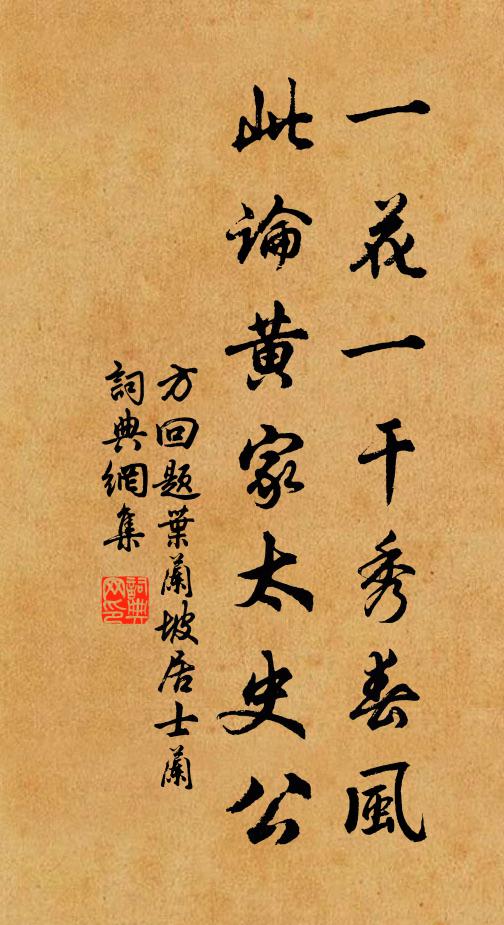 一花一干秀春風
此論黄家太史公
方回題葉蘭坡居士蘭
詞典網集
詞典網印